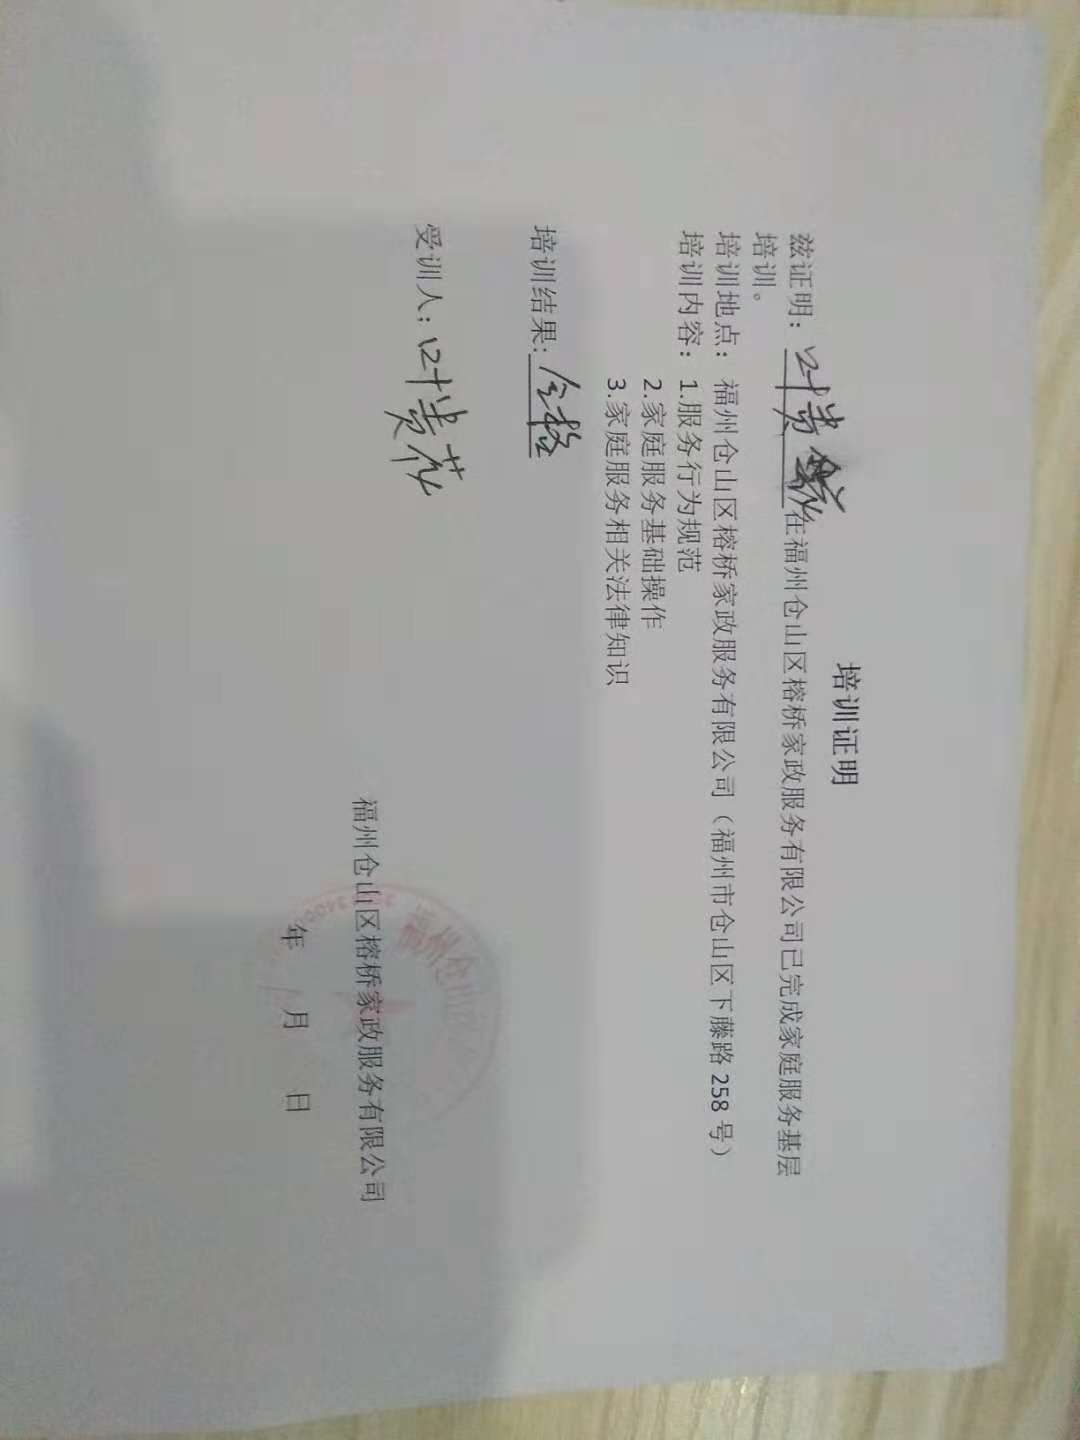 培训证明
兹证明：叶贵 在福州仓山区榕桥家政服务有限公司已完成家庭服务基层
培训。
培训地点：福州仓山区榕桥家政服务有限公司（福州市仓山区下藤路258号）
培训内容：1.服务行为规范
2.家庭服务基础操作
3.家庭服务相关法律知识
培训结果：合格
受训人：叶贵花
福州仓山区榕桥家政服务有限公司
年 月 日
福州仓山